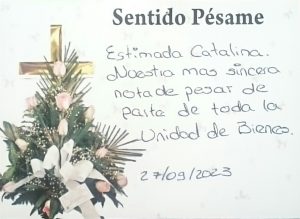 Sentido Pésame
Estimada Catalina.
Nuestra mas sincera
nota de pesar de
parte de toda la
Unidad de Bienes.
27/09/2023